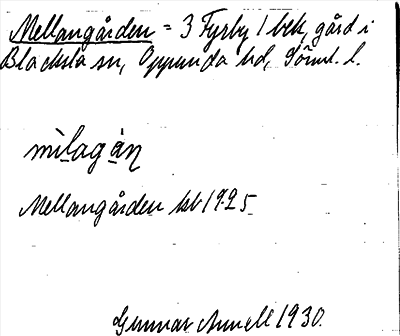 Mellangården = 3 Fyrby 1 bek, gård i
Blacksta sn, Oppunda hd, Söml. l.
mìlagàṇ
Mellangården kb 1925
Gunnar Annell 1930.